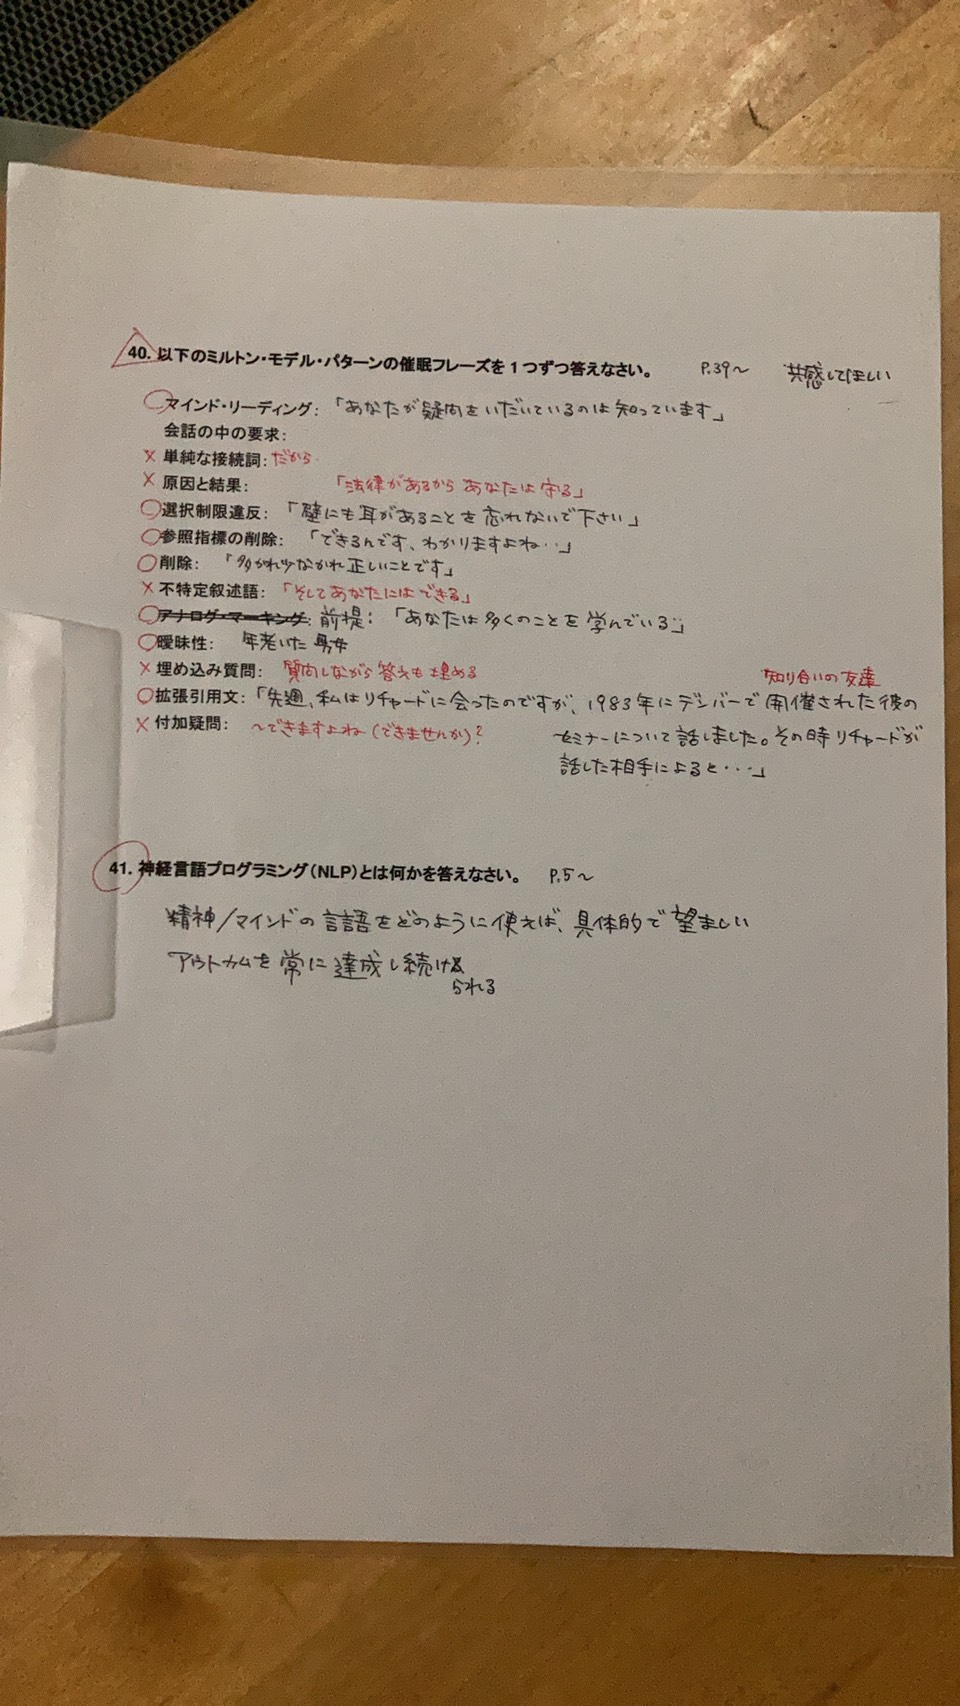 40. 以下のミルトン・モデル・パターンの催眠フレーズを1つずつ答えなさい。 P.39〜 共感してほしい
マインド・リーディング：「あなたが疑問をいだいているのは知っています」
会話の中の要求：
× 単純な接続詞：だから
× 原因と結果：「法律があるから あなたは守る」
選択制限違反：「壁にも耳があることを忘れないで下さい」
参照指標の削除：「できるんです、わかりますよね…」
削除：「多かれ少なかれ正しいことです」
× 不特定叙述語：「そしてあなたにはできる」
アナログ・マーキング：前提：「あなたは多くのことを学んでいる」
曖昧性： 年老いた男女
× 埋め込み質問： 質問しながら答えも埋める
知り合いの友達
拡張引用文：「先週、私はリチャードに会ったのですが、1983年にデンバーで開催された彼の
セミナーについて話しました。その時リチャードが
話した相手によると・・・」
× 付加疑問： 〜できますよね（できませんか）？
41. 神経言語プログラミング（NLP）とは何かを答えなさい。 P.5〜
精神／マインドの言語をどのように使えば、具体的で望ましい
アウトカムを常に達成し続ける
られる